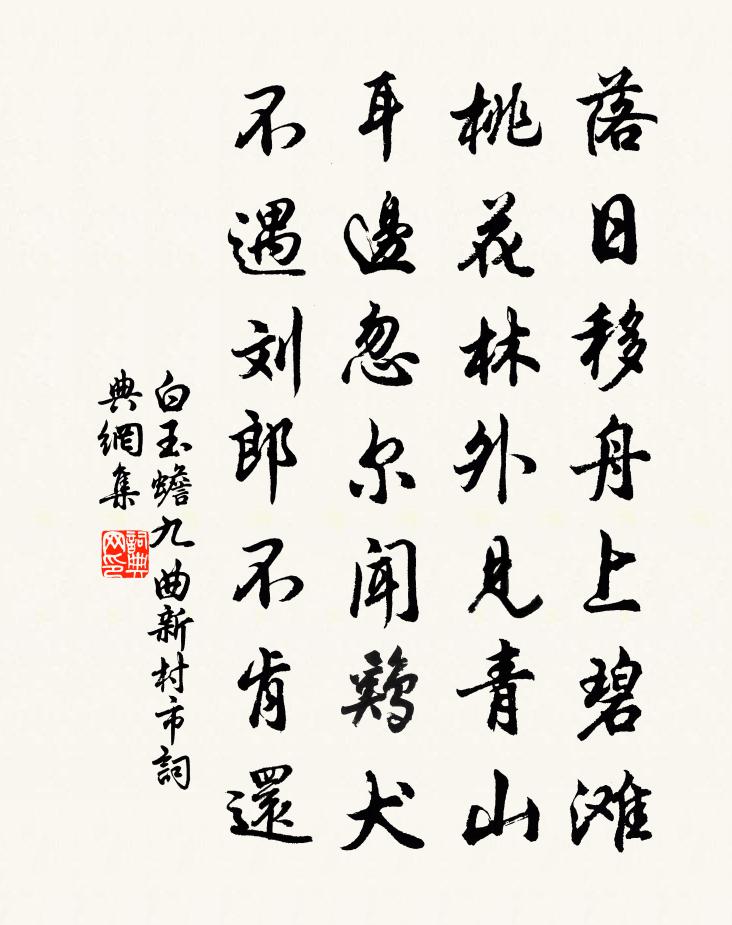 落日移舟上碧滩
桃花林外见青山
耳邊忽尔闻鷄犬
不遇刘郎不肯還
白玉蟾九曲新村市詞
典網集
詞典
网印